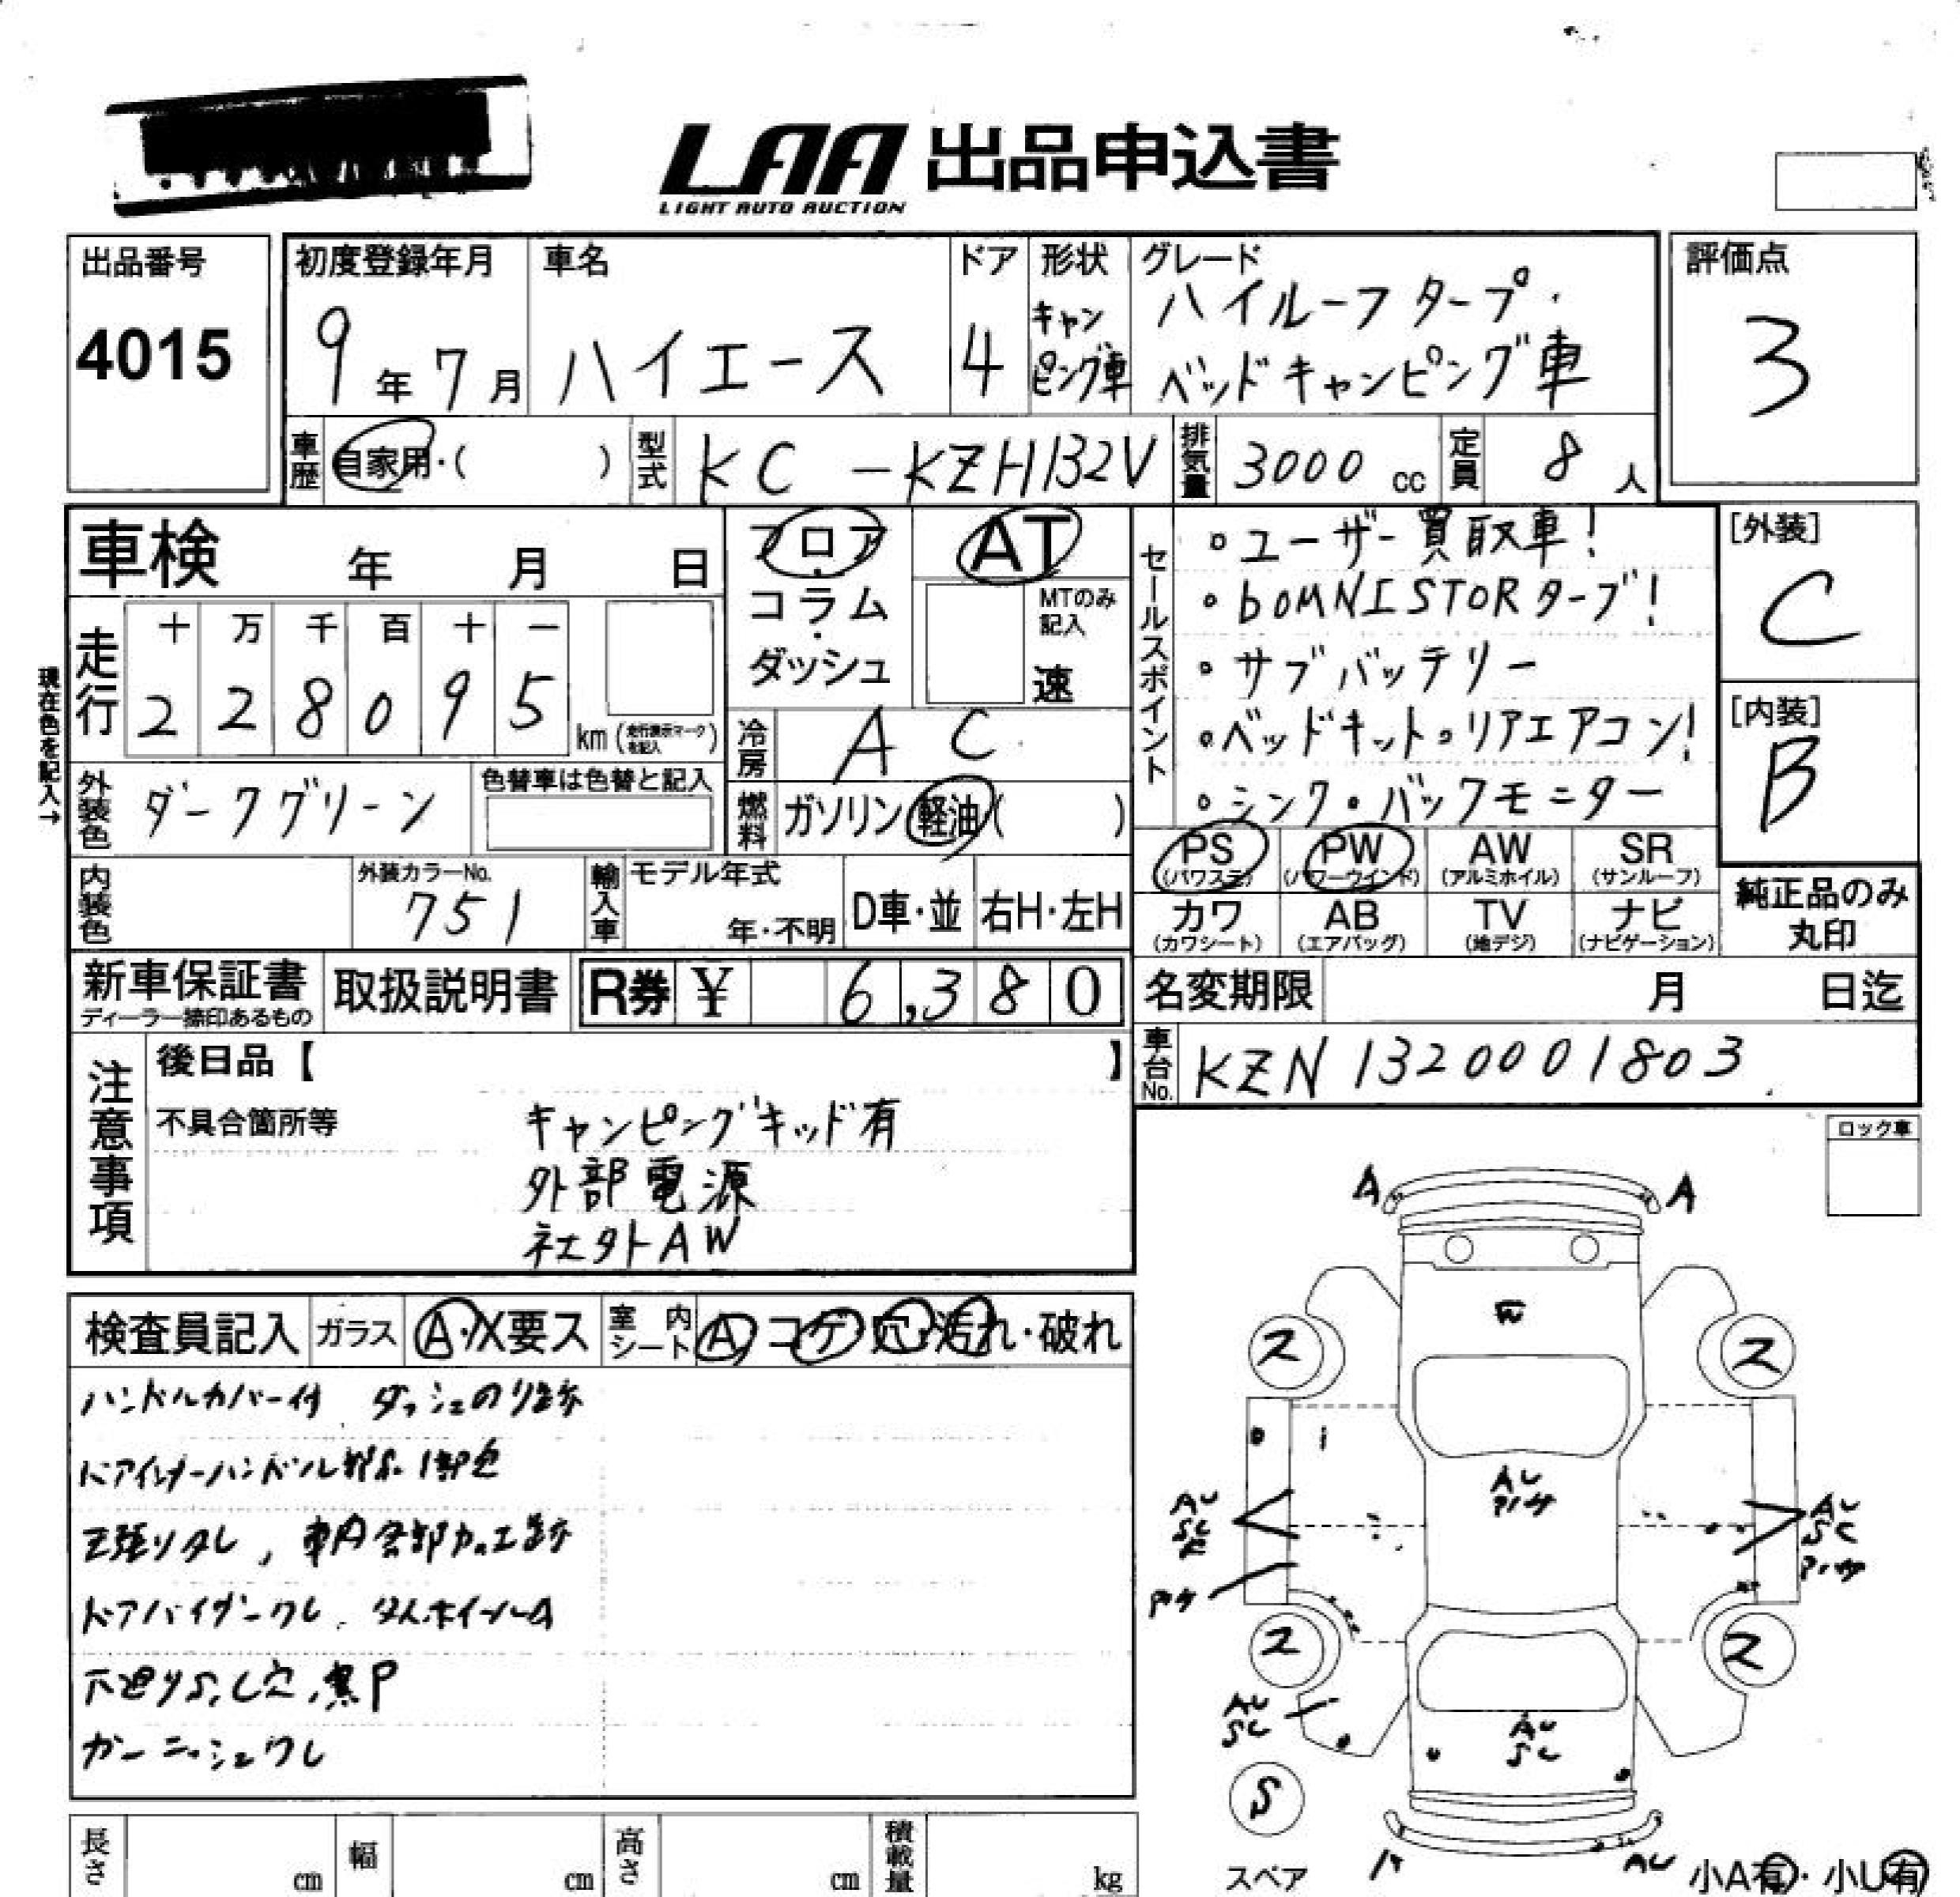 LAA 出品申込書
LIGHT AUTO AUCTION
出品番号
4015
初度登録年月
9年7月
車名
ハイエース
ドア
4
形状
キャンピング車
グレード
ハイルーフタープ・
ベッドキャンピング車
評価点
3
車歴 自家用・( )
型式 KC-KZH132V
排気量 3000 cc
定員 8人
車検 年 月 日
フロア・コラム・ダッシュ
AT
MTのみ記入
速
走行
十 万 千 百 十 一
2 2 8 0 9 5 km (走行表示マークを記入)
現在色を記入→
冷房 AC
外装色 ダークグリーン
色替車は色替と記入
燃料 ガソリン 軽油 ( )
セールスポイント
・ユーザー買取車!
・bOMNISTORターブ!
・サブバッテリー
・ベッドキット。リアエアコン!
・シンク・バックモニター
[外装]
C
[内装]
B
内装色
外装カラーNo.
751
輸入車 モデル年式
年・不明
D車・並
右H・左H
PS (パワステ)
PW (パワーウインド)
AW (アルミホイル)
SR (サンルーフ)
カワ (カワシート)
AB (エアバッグ)
TV (地デジ)
ナビ (ナビゲーション)
純正品のみ
丸印
新車保証書
ディーラー捺印あるもの
取扱説明書
R券 ¥ 6,380
名変期限 月 日迄
車台No. KZN1320001803
注意事項
後日品【 】
不具合箇所等
キャンピングキッド有
外部電源
社外AW
ロック車
検査員記入
ガラス A・X要ス
室内シート A コゲ・穴・汚れ・破れ
ハンドルカバー付 ダッシュのり跡
ドアバイザーワレ
ガーニッシュワレ
A
A
ス
ス
AU
AU
SC
AU
SC
ス
ス
AU
SC
AU
SC
S
スペア
AU
小A有・小U有
長さ cm
幅 cm
高さ cm
積載量 kg